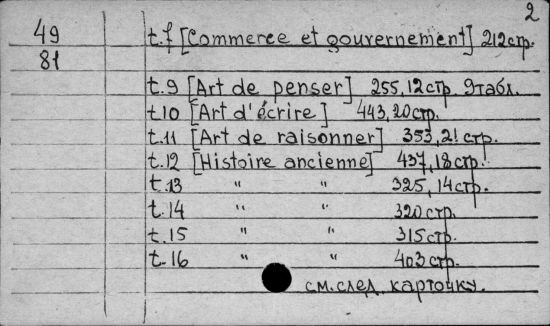 2
49 t.f [Commerce et gouvernement] 212 стр.
81
t.9 [Art de penser] 255, 12 стр. 9 табл.
t.10 [Art d'écrire] 443, 20 стр.
t.11 [Art de raisonner] 353, 21 стр.
t.12 [Histoire ancienne] 437, 18 стр.
t.13 " " 325, 14 стр.
t.14 " " 320 стр.
t.15 " " 315 стр.
t.16 " " 403 стр.
см. след. карточку.